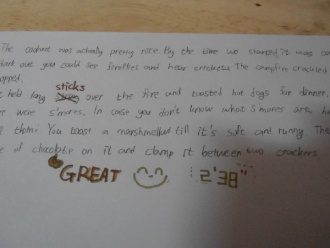 The cookout was actually pretty nice. By the time we started it was
dark out you could see fireflies and hear crickets. The campfire crackled
popped.
held long sticks over the fire and toasted hot dogs for dinner.
were s'mores. In case you don't know what s'mores are,
them: You toast a marshmallow till it's soft and runny. The
of chocolate on it and clamp it between two crackers
GREAT